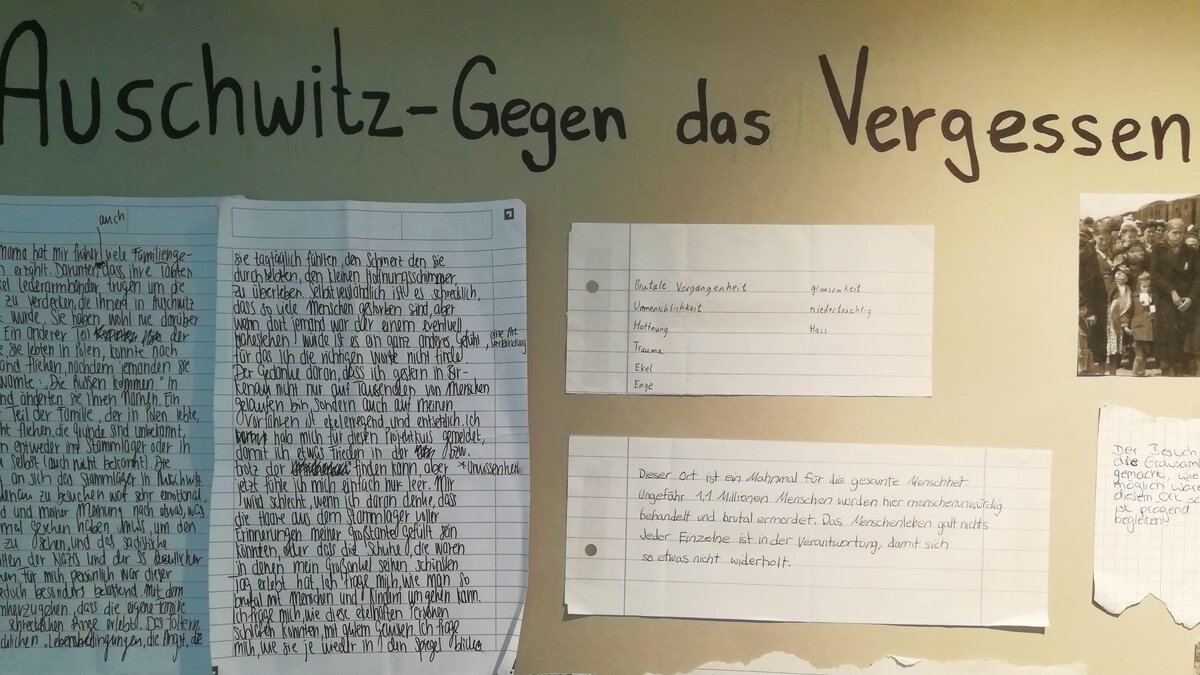 Auschwitz-Gegen das Vergessen
auch
mama hat mir früher viele Familienge-
erzählt. Darunter, dass ihre Tanten
Lederarmbänder trugen um die
zu verdecken, die ihnen in Auschwitz
wurde. Sie haben wohl nie darüber
Ein anderer Teil der
sie lebten in Polen, konnte nach
fliehen, nachdem jemanden sie
"Die Russen kommen." In
änderten sie ihren Namen. Ein
Teil der Familie, der in Polen lebte,
fliehen, die Gründe sind unbekannt,
entweder ins Stammlager oder in
selbst (auch nicht bekannt). Die
an sich das Stammlager in Auschwitz
zu besuchen war sehr emotional,
und meiner Meinung nach etwas, was
gesehen haben muss, um den
zu sehen, und das sadistische
der Nazis und der SS
für mich persönlich war dieser
jedoch besonders belastend. Mit dem
dass die eigene Familie
schrecklichen Dinge erlebte. Das Foltern,
Lebensbedingungen, die Angst, die
sie tagtäglich fühlten, den Schmerz den sie
durchlebten, den kleinen Hoffnungsschimmer,
zu überleben. Selbstverständlich ist es schrecklich,
dass so viele Menschen gestorben sind, aber
wenn dort jemand war der einem eventuell
nahestehen würde ist es ein ganz anderes Gefühl, eine Art Verbindung
für das ich die richtigen Worte nicht finde
Der Gedanke daran, dass ich gestern in Bir-
kenau nicht nur auf Tausenden von Menschen
gelaufen bin, sondern auch auf meinen
Vorfahren ist ekelerregend, und entsetzlich. Ich
hab mich für diesen Projektkurs gemeldet,
damit ich etwas Frieden in der bzw.
trotz der finden kann, aber *Unwissenheit
jetzt fühle ich mich einfach nur leer. Mir
wird schlecht, wenn ich daran denke, dass
die Haare aus dem Stammlager voller
Erinnerungen meiner Großtante gefüllt sein
könnten, oder dass die Schuhe, die waren
in denen mein Großonkel seinen schönsten
Tag erlebt hat. Ich frage mich, wie man so
brutal mit Menschen und Kindern umgehen kann.
Ich frage mich, wie diese ekelhaften
schlafen konnten, mit gutem Gewissen. Ich frage
mich, wie sie je wieder in den Spiegel blicken
Brutale Vergangenheit grausamkeit
Unmenschlichkeit niederträchtig
Hoffnung Hass
Trauma
Ekel
Enge
Dieser Ort ist ein Mahnmal für die gesamte Menschheit.
Ungefähr 1,1 Millionen Menschen wurden hier menschenunwürdig
behandelt und brutal ermordet. Das Menschenleben galt nichts.
Jeder Einzelne ist in der Verantwortung, damit sich
so etwas nicht widerholt.
Der Besuch
die Grausam
gemacht, wie
möglich ware
diesem Ort
ist prägend
begleiten